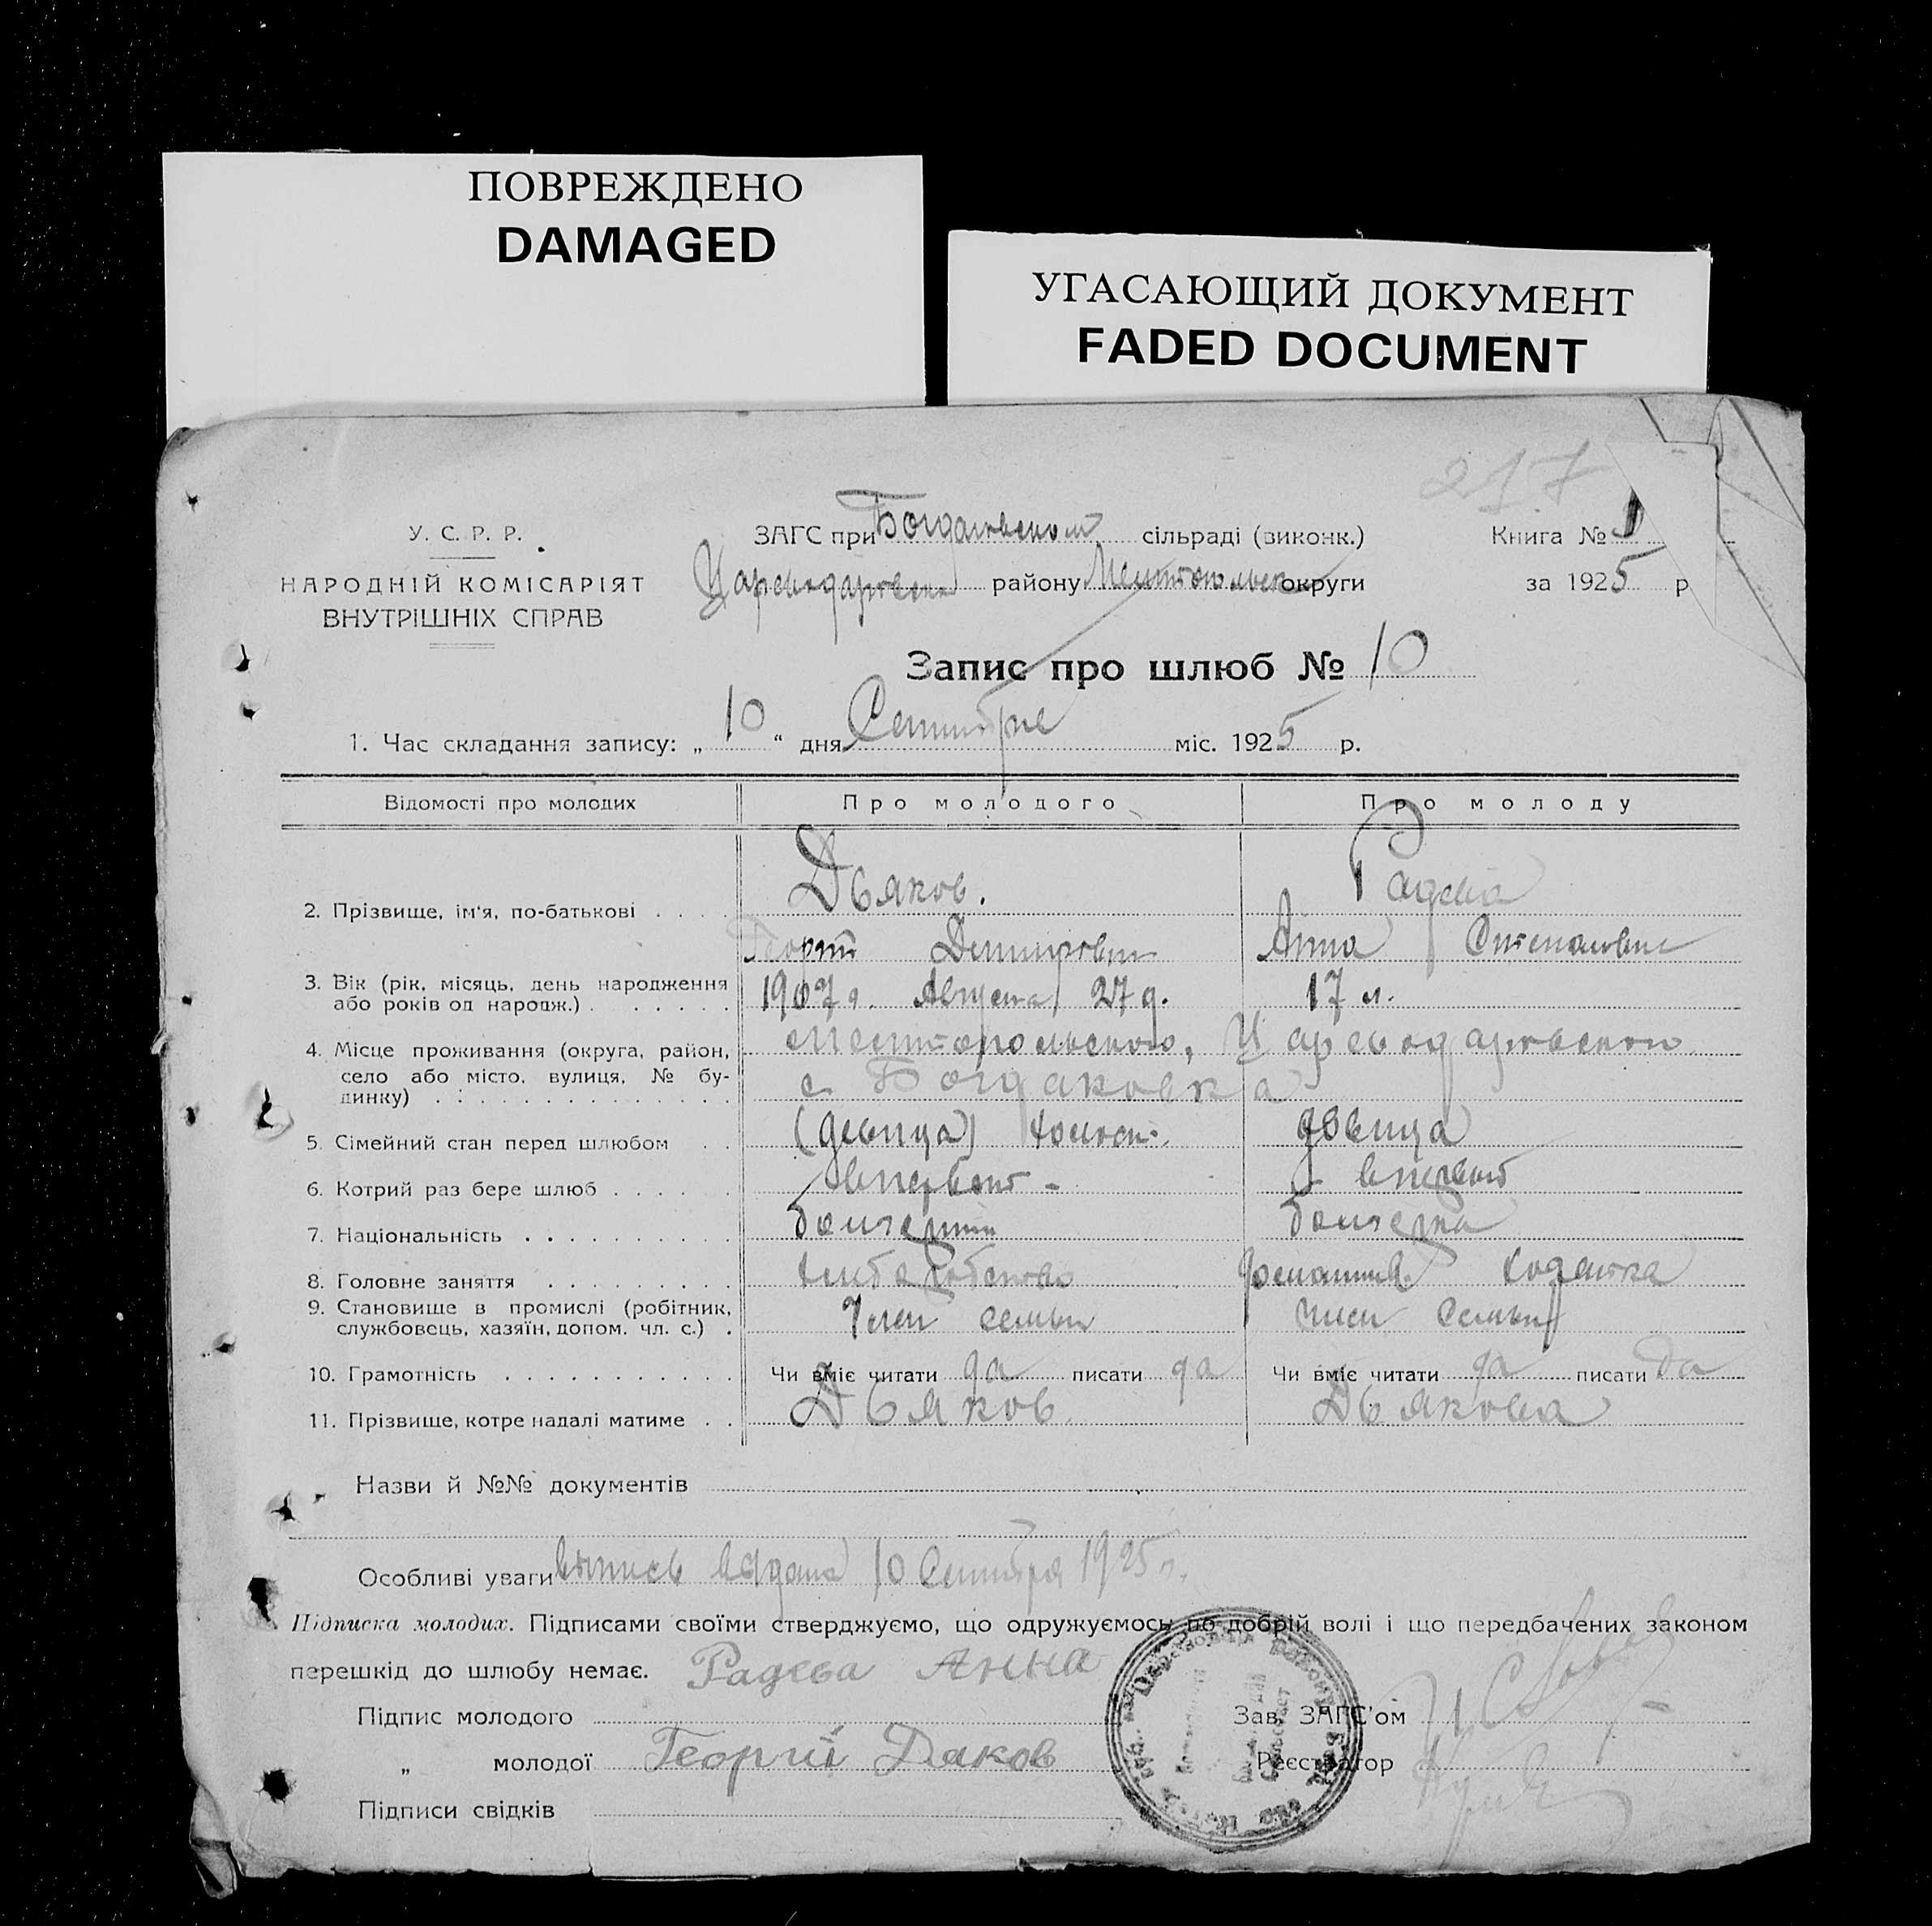 ПОВРЕЖДЕНО
DAMAGED
УГАСАЮЩИЙ ДОКУМЕНТ
FADED DOCUMENT
217
У. С. Р. Р.
НАРОДНІЙ КОМІСАРІЯТ
ВНУТРІШНІХ СПРАВ
ЗАГС при Богдановском сільраді (виконк.)
району округи
Книга № 1
за 1925 р
Запис про шлюб № 10
1. Час складання запису: „ 10 “ дня Сентября міс. 1925 р.
Відомості про молодих Про молодого Про молоду
2. Прізвище, ім'я, по-батькові . . . . Дьяков. Радева
Георгий Дмитрович Анна Степановна
3. Вік (рік, місяць, день народження 1907 г. Августа 27 д. 17 л.
або років од народж.) . . . . . .
4. Місце проживання (округа, район, Мелитопольского, Цареводаровского
село або місто, вулиця, № бу- с. Богдановка
динку) . . . . . . . . . . . . . .
5. Сімейний стан перед шлюбом . . (девица) холост. девица
6. Котрий раз бере шлюб . . . . . . впервой - впервой
7. Національність . . . . . . . . . . болгарин болгарка
8. Головне заняття . . . . . . . . . хлебопашество домашняя
9. Становище в промислі (робітник, Член семьи член семьи
службовець, хазяїн, допом. чл. с.) .
10. Грамотність . . . . . . . . . . . Чи вміє читати да писати да Чи вміє читати да писати да
11. Прізвище, котре надалі матиме . . Дьяков. Дьякова
Назви й №№ документів
Особливі уваги выпись выдана 10 Сентября 1925 г.
Підписка молодих. Підписами своїми стверджуємо, що одружуємось по добрій волі і що передбачених законом
перешкід до шлюбу немає. Радева Анна
Підпис молодого
Зав. ЗАГС'ом
„ молодої Георгій Дяков
Реєстратор
Підписи свідків